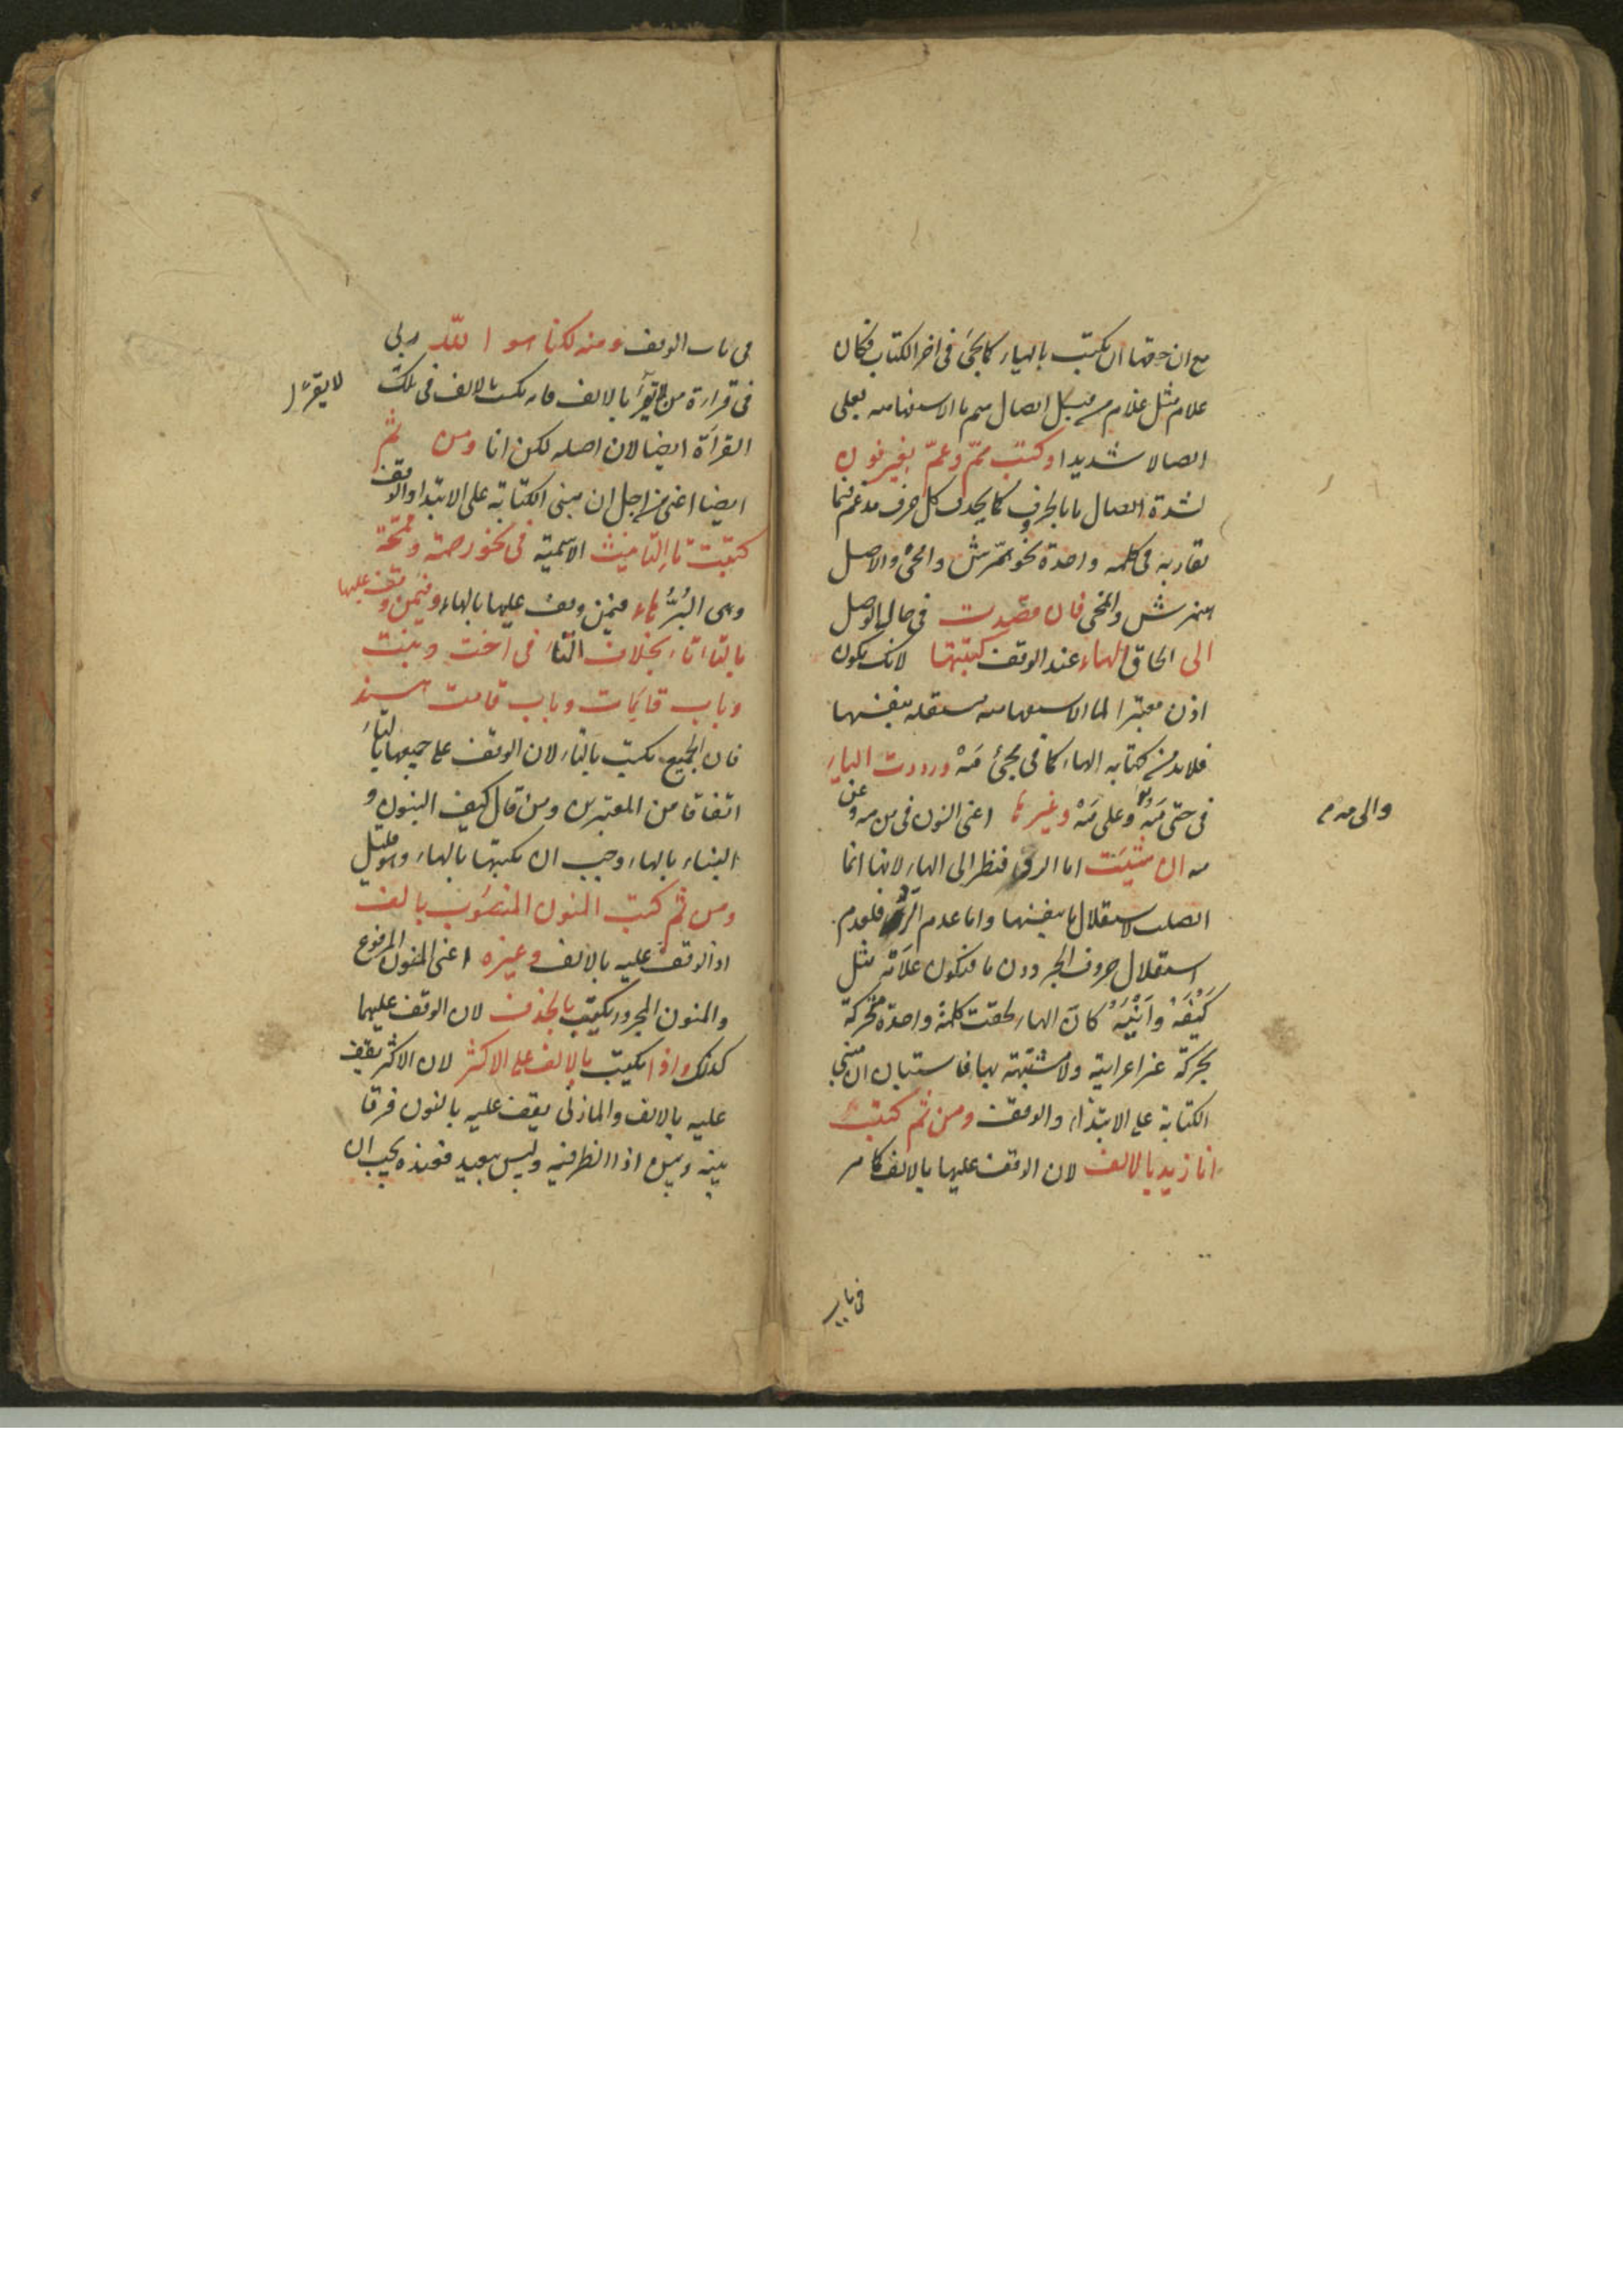 مع ان حقها ان يكتب بالياء كما يجئ فى اخر الكتاب فكان
علام مثل غلام من قبيل اتصال ميم ما الاستفهاميه بعلى
اتصالا شديدا وكتب ممّ وعمّ بغير نون
لشدة اتصال ما بالحرف كما يحذف كل حرف مدغم فيما
يقاربه فى كلمه واحدة نحو همّرش وامّحى والاصل
هنمرش وانمحى فان قصدت فى حال الوصل
الى الحاق الهاء عند الوقف كتبتها لانك تكون
اذن معتبرا لما الاستفهاميه مستقله بنفسها
فلابد من كتابه الهاء كما فى مجئ مَهْ ورددت الياء
فى حتى مَهْ وعلى مَهْ وغيرها اعنى النون فى من مه وعن
والى مه م
مه ان شئت اما الرد فنظر الى الهاء لانها انما
اتصلت لاستقلال ما بنفسها واما عدم الرد فلعدم
استقلال حروف الجر دون ما فتكون علامه مثل
كَيْفَهْ وَاَيْنَهْ كان الهاء لحقت كلمة واحدة متحركة
بحركة غير اعرابية ولا مشبّهة بها فاستبان ان مبنى
الكتابة على الابتداء والوقف ومن ثم كتبت
انا زيد بالالف لان الوقف عليها بالالف كما مر
فى باب
فى باب الوقف ومنه لكنا هو الله ربى
فى قراءة من لا يقرأ بالالف فانه يكتب بالالف فى تلك
لا يقرأ
القرأة ايضا لان اصله لكن انا ومن ثم
ايضا اعنى من اجل ان مبنى الكتابة على الابتدا والوقف
كتبت تاء التانيث الاسمية فى نحو رحمة وقمحة
وهى البُرُّ هاء فيمن وقف عليها بالهاء وفيمن وقف عليها
بالتاء تاء بخلاف التاء فى اخت وبنت
وباب قايمات وباب قامت هند
فان الجميع يكتب بالتاء لان الوقف على جميعها بالتاء
اتفاقا من المعتبرين ومن قال كيف البنون و
البناه بالهاء وجب ان يكتبها بالهاء وهو قليل
ومن ثم كتب المنون المنصوب بالف
اذ الوقف عليه بالالف وغيره اعنى المنون المرفوع
والمنون المجرور يكتب بالحذف لان الوقف عليهما
كذلك واذا يكتب بالالف على الاكثر لان الاكثر يقف
عليه بالالف والمازنى يقف عليه بالنون فرقا
بينه وبين اذا الظرفيه وليس ببعيد فعنده يجب ان